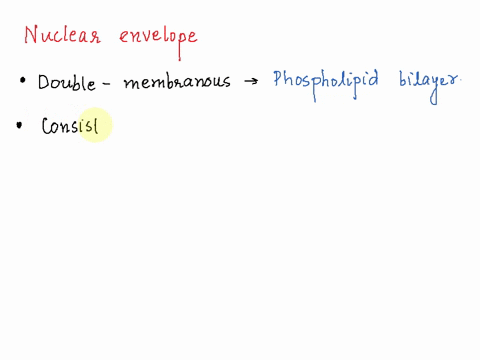 Nuclear envelope
• Double - membranous → Phospholipid bilayer.
• Consist